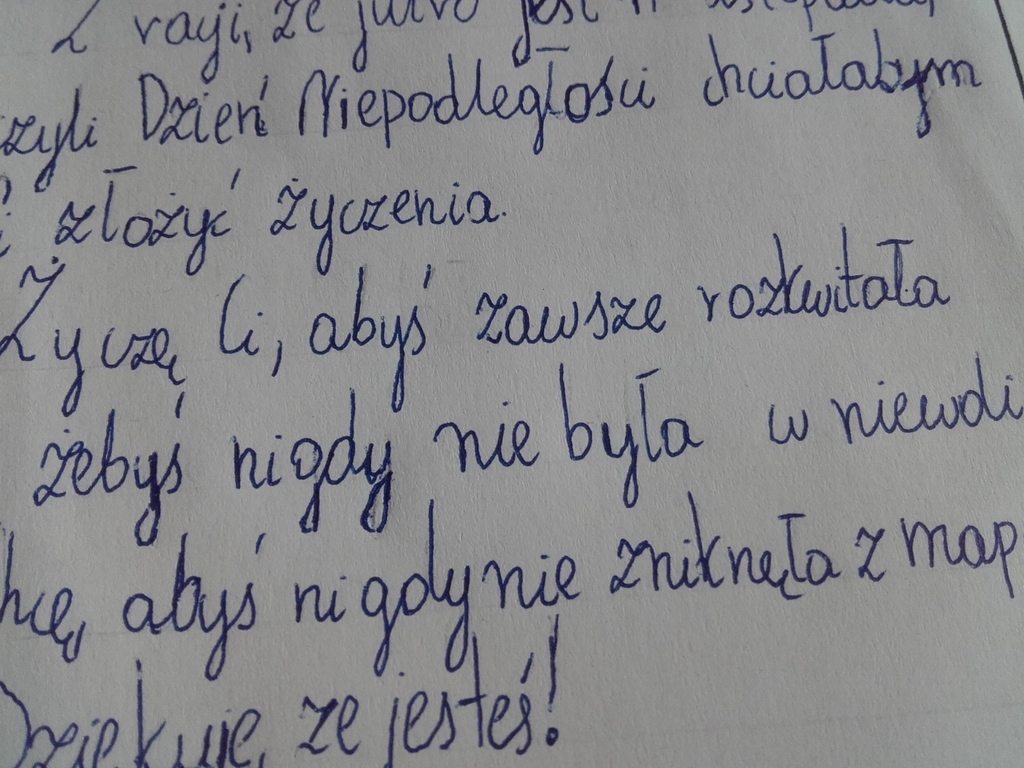 Z racji, że jutro jest 11 listopada,
czyli Dzień Niepodległości chciałabym
Ci złożyć życzenia.
Życzę Ci, abyś zawsze rozkwitała
żebyś nigdy nie była w niewoli
chcę, abyś nigdy nie zniknęła z map
Dziękuję, ze jesteś!